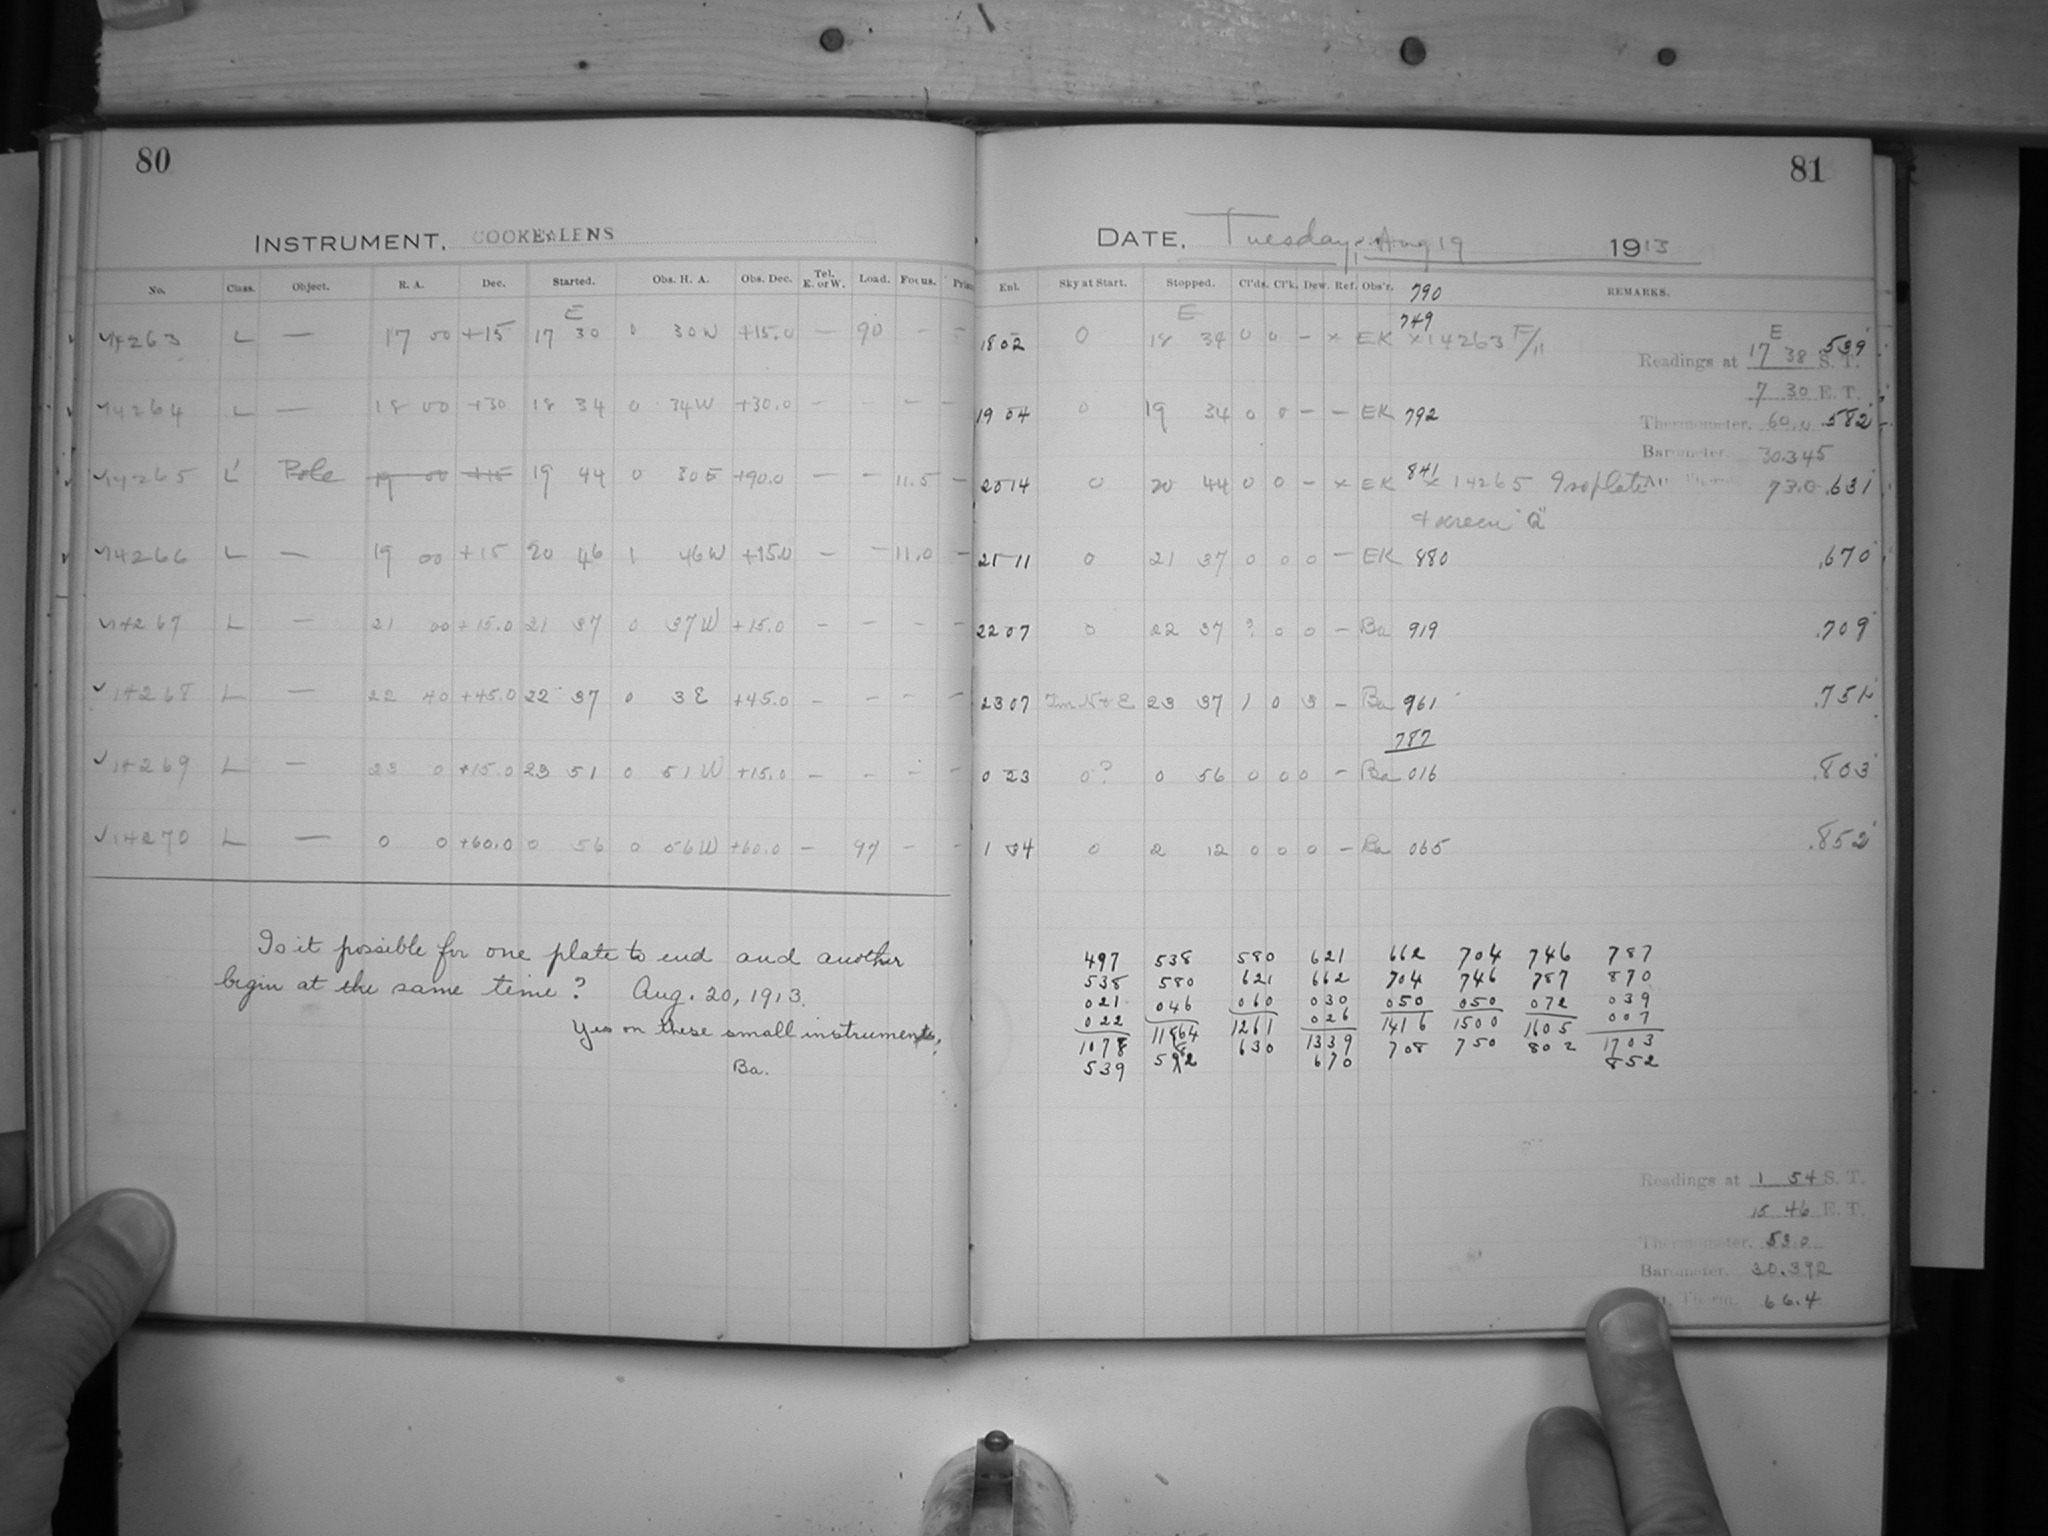 80
INSTRUMENT. COOKE LENS
No. Class. Object. R. A. Dec. Started. Obs. H. A. Obs. Dec. Tel. E. or W. Load. Focus.
E
14263 L — 17 00 +15 17 30 0 30 W +15.0 — 90 - -
14264 L — 18 00 +30 18 34 0 34 W +30.0 - - - -
14265 L' Pole 19 00 +15 19 44 0 30 E +90.0 — - 11.5 -
14266 L — 19 00 +15 20 46 1 46 W +15.0 - - 11.0 -
14267 L — 21 00 +15.0 21 37 0 37 W +15.0 - - - -
14268 L — 22 40 +45.0 22 37 0 3 E +45.0 - - - -
14269 L — 23 0 +15.0 23 51 0 51 W +15.0 - - - -
14270 L — 0 0 +60.0 0 56 0 56 W +60.0 - 97 - -
Is it possible for one plate to end and another
begin at the same time? Aug. 20, 1913.
Yes on these small instruments.
Ba.
81
DATE. Tuesday, Aug 19 1913
Enl. Sky at Start. Stopped. Cl'ds. Cl'k. Dew. Ref. Obs'r. REMARKS.
790
E
749
1802 0 18 34 0 0 - x EK x14263 F/11
E
Readings at 17 38 S. T. .539
7 30 E. T.
19 04 0 19 34 0 0 - - EK 792
Thermometer. 60.0 .582
Barometer. 30.345
841
2014 0 20 44 0 0 - x EK x 14265 Isoplate
Att. Therm. 73.0 .631
+ screen "Q"
21 11 0 21 37 0 0 0 - EK 880 .670
22 07 0 22 37 ? 0 0 - Ba 919 .709
23 07 Im N & E 23 37 1 0 3 - Ba 961 .751
787
0 23 0? 0 56 0 0 0 - Ba 016 .803
1 34 0 2 12 0 0 0 - Ba 065 .852
497 538 580 621 662 704 746 787
538 580 621 662 704 746 787 870
021 046 060 030 050 050 072 039
022 1261 026 1416 1500 1605 007
1078 1164 630 1339 708 750 802 1703
539 582 670 852
Readings at 1 54 S. T.
15 46 E. T.
Thermometer. 53.0
Barometer. 30.392
Therm. 66.4